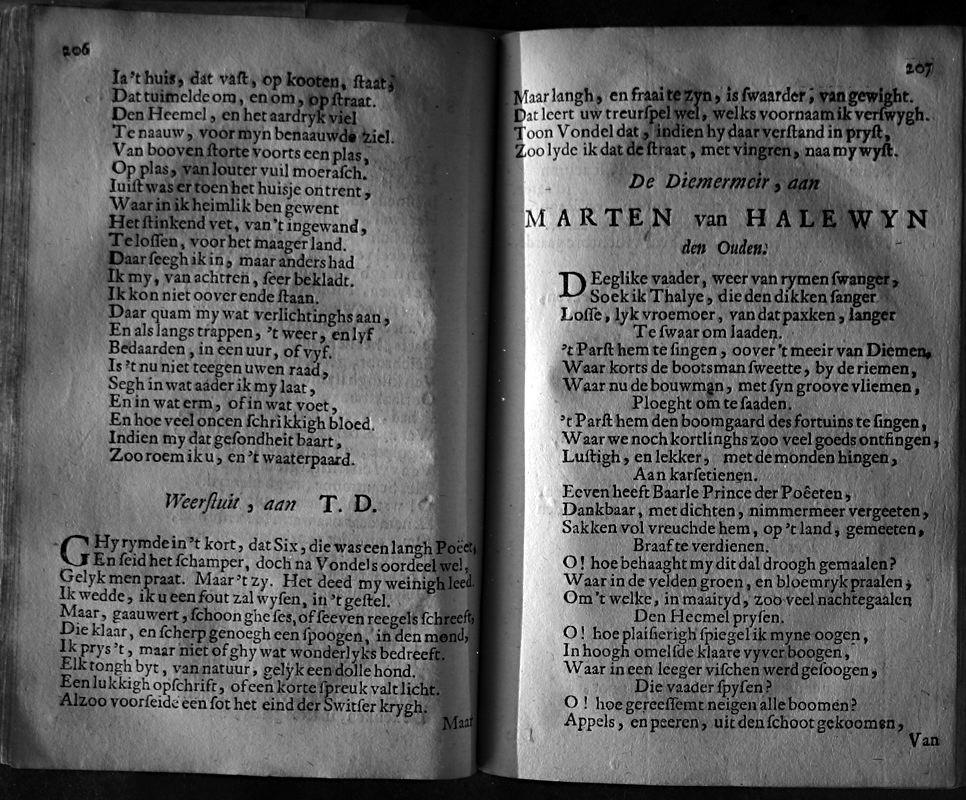 206
Ia 't huis, dat vaſt, op kooten, ſtaat,
Dat tuimelde om, en om, op ſtraat.
Den Heemel, en het aardryk viel
Te naauw, voor myn benaauwde ziel.
Van booven ſtorte voorts een plas,
Op plas, van louter vuil moeraſch.
Iuiſt was er toen het huisje ontrent,
Waar in ik heimlik ben gewent
Het ſtinkend vet, van 't ingewand,
Te loſſen, voor het maager land.
Daar ſeegh ik in, maar anders had
Ik my, van achtren, ſeer bekladt.
Ik kon niet oover ende ſtaan.
Daar quam my wat verlichtinghs aan,
En als langs trappen, 't weer, en lyf
Bedaarden, in een uur, of vyf.
Is 't nu niet teegen uwen raad,
Segh in wat aader ik my laat,
En in wat erm, of in wat voet,
En hoe veel oncen ſchrikkigh bloed.
Indien my dat geſondheit baart,
Zoo roem ik u, en 't waaterpaard.
Weerſtuit, aan T. D.
GHy rymde in 't kort, dat Six, die was een langh Poëet,
En ſeid het ſchamper, doch na Vondels oordeel wel,
Gelyk men praat. Maar 't zy. Het deed my weinigh leed.
Ik wedde, ik u een fout zal wyſen, in 't geſtel.
Maar, gaauwert, ſchoon ghe ſes, of ſeeven reegels ſchreeft,
Die klaar, en ſcherp genoegh een ſpoogen, in den mond,
Ik prys 't, maar niet of ghy wat wonderlyks bedreeft.
Elk tongh byt, van natuur, gelyk een dolle hond.
Een lukkigh opſchrift, of een korte ſpreuk valt licht.
Alzoo voorſeide een ſot het eind der Switſer krygh.
Maar
207
Maar langh, en fraai te zyn, is ſwaarder, van gewight.
Dat leert uw treurſpel wel, welks voornaam ik verſwygh.
Toon Vondel dat, indien hy daar verſtand in pryſt,
Zoo lyde ik dat de ſtraat, met vingren, naa my wyſt.
De Diemermeir, aan
MARTEN van HALEWYN
den Ouden.
DEeglike vaader, weer van rymen ſwanger,
Soek ik Thalye, die den dikken ſanger
Loſſe, lyk vroemoer, van dat paxken, langer
Te ſwaar om laaden.
't Parſt hem te ſingen, oover 't meeir van Diemen,
Waar korts de bootsman ſweette, by de riemen,
Waar nu de bouwman, met ſyn groove vliemen,
Ploeght om te ſaaden.
't Parſt hem den boomgaard des fortuins te ſingen,
Waar we noch kortlinghs zoo veel goeds ontfingen,
Luſtigh, en lekker, met de monden hingen,
Aan karſetienen.
Eeven heeft Baarle Prince der Poëeten,
Dankbaar, met dichten, nimmermeer vergeeten,
Sakken vol vreuchde hem, op 't land, gemeeten,
Braaf te verdienen.
O! hoe behaaght my dit dal droogh gemaalen?
Waar in de velden groen, en bloemryk praalen,
Om 't welke, in maaityd, zoo veel nachtegaalen
Den Heemel pryſen.
O! hoe plaiſierigh ſpiegel ik myne oogen,
In hoogh omelſde klaare vyver boogen,
Waar in een leeger viſchen werd geſoogen,
Die vaader ſpyſen?
O! hoe gereeſſemt neigen alle boomen?
Appels, en peeren, uit den ſchoot gekoomen,
Van